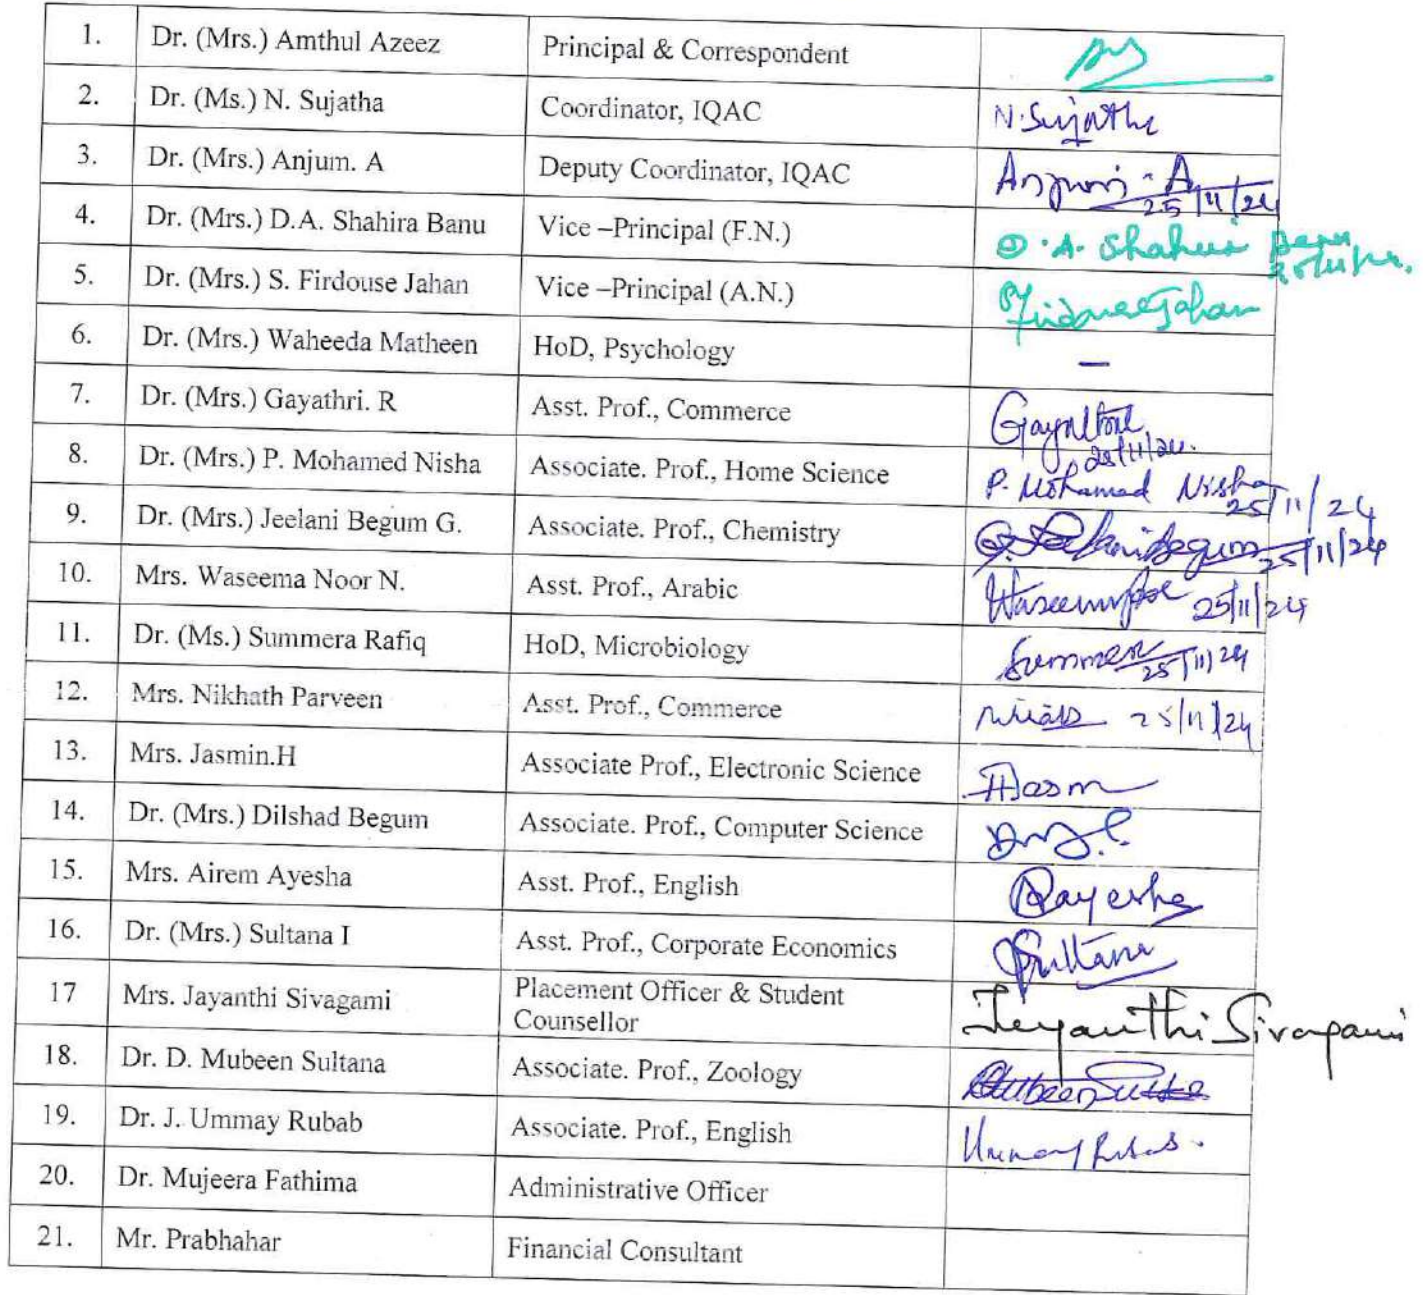 1. Dr. (Mrs.) Amthul Azeez Principal & Correspondent
2. Dr. (Ms.) N. Sujatha Coordinator, IQAC N. Sujatha
3. Dr. (Mrs.) Anjum. A Deputy Coordinator, IQAC Anjum. A 25/11/24
4. Dr. (Mrs.) D.A. Shahira Banu Vice –Principal (F.N.) D. A. Shahira Banu
5. Dr. (Mrs.) S. Firdouse Jahan Vice –Principal (A.N.) S Firdouse Jahan
6. Dr. (Mrs.) Waheeda Matheen HoD, Psychology –
7. Dr. (Mrs.) Gayathri. R Asst. Prof., Commerce Gayathri 25/11/24.
8. Dr. (Mrs.) P. Mohamed Nisha Associate. Prof., Home Science P. Mohamed Nisha 25/11/24
9. Dr. (Mrs.) Jeelani Begum G. Associate. Prof., Chemistry G. Jeelani Begum 25/11/24
10. Mrs. Waseema Noor N. Asst. Prof., Arabic 25/11/24
11. Dr. (Ms.) Summera Rafiq HoD, Microbiology Summera 25/11/24
12. Mrs. Nikhath Parveen Asst. Prof., Commerce 25/11/24
13. Mrs. Jasmin.H Associate Prof., Electronic Science
14. Dr. (Mrs.) Dilshad Begum Associate. Prof., Computer Science
15. Mrs. Airem Ayesha Asst. Prof., English Aayesha
16. Dr. (Mrs.) Sultana I Asst. Prof., Corporate Economics Sultana
17 Mrs. Jayanthi Sivagami Placement Officer & Student
Counsellor Jeyanthi Sivagami
18. Dr. D. Mubeen Sultana Associate. Prof., Zoology
19. Dr. J. Ummay Rubab Associate. Prof., English Ummay Rubab.
20. Dr. Mujeera Fathima Administrative Officer
21. Mr. Prabhahar Financial Consultant